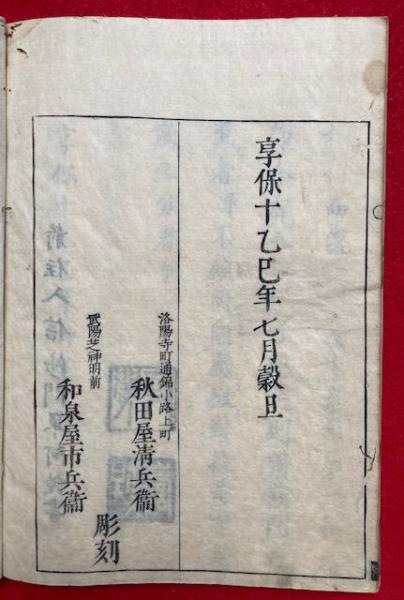 享保十乙巳年七月穀旦
洛陽寺町通錦小路上町
秋田屋清兵衞
武陽芝神明前
和泉屋市兵衞
彫刻